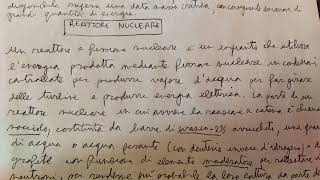 disponibile supera una data massa critica, con conseguente emissione di
grandi quantità di energia.
REATTORE NUCLEARE
Un reattore a fissione nucleare è un impianto che utilizza
l'energia prodotta mediante fissione nucleare in condizioni
controllate per produrre vapore d'acqua per far girare
delle turbine e produrre energia elettrica. La parte di un
reattore nucleare in cui avviene la reazione a catena è chiamata
nocciolo, costituita da barre di uranio-235 arricchito, una
di acqua o acqua pesante (con deuterio invece d'idrogeno)
grafite con funzione di elemento moderatore, per rallentare i
neutroni, per rendere più probabile la loro cattura da parte